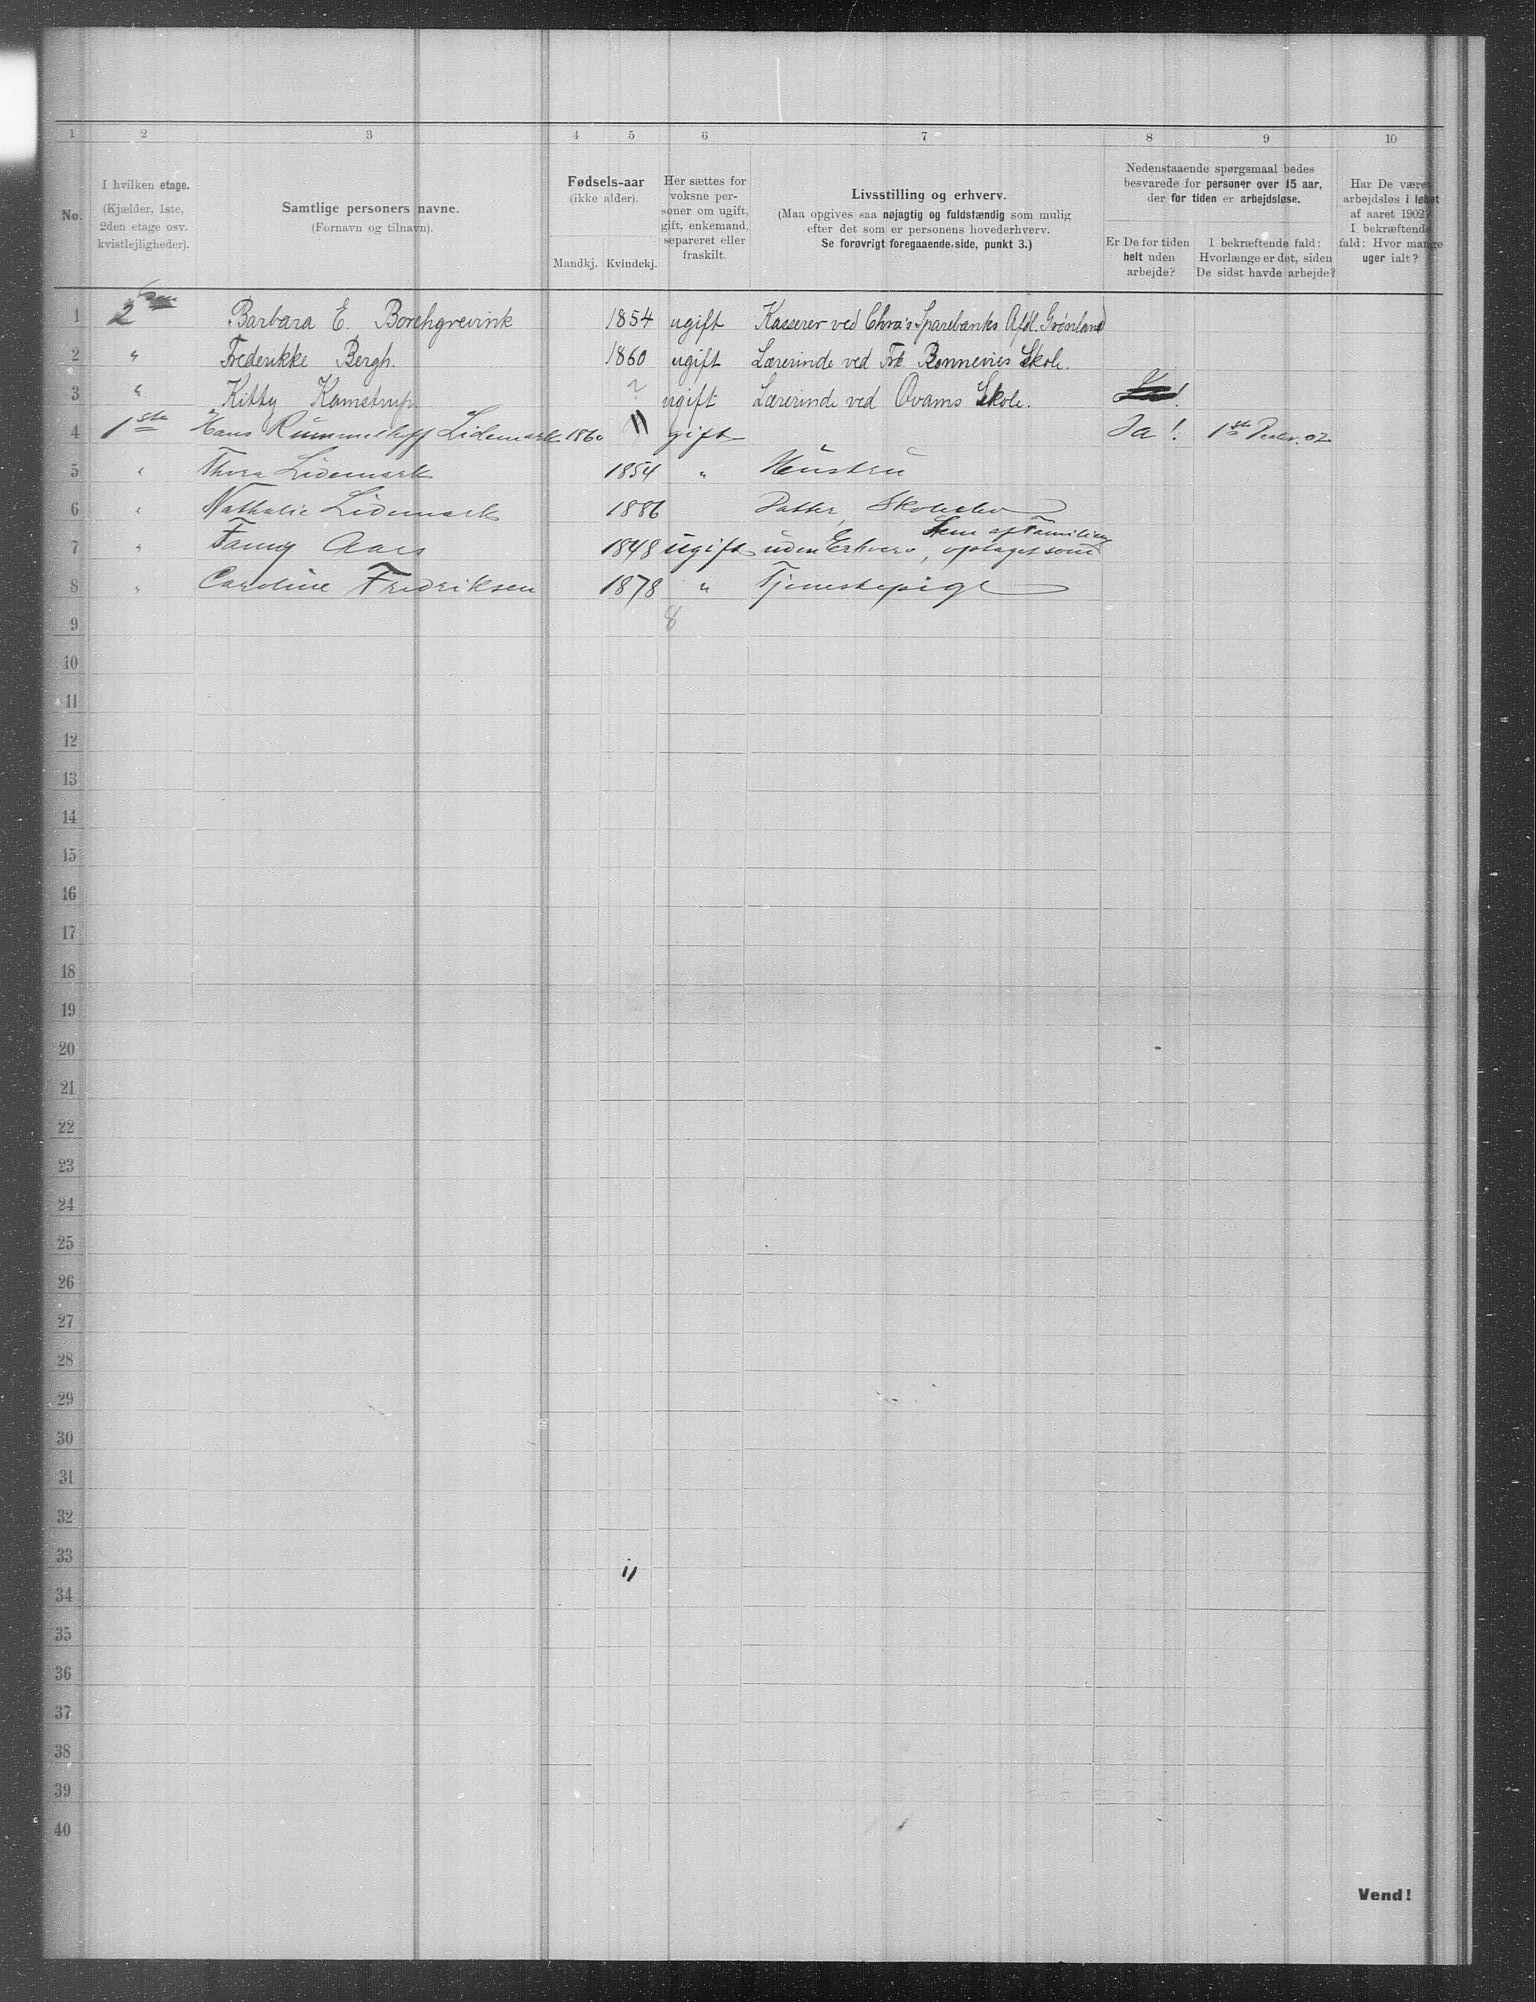 1 2 3 4 5 6 7 8 9 10
No.
I hvilken etage.
(Kjælder, 1ste,
2den etage osv.
kvistlejligheder).
Samtlige personers navne.
(Fornavn og tilnavn).
Fødsels-aar
(ikke alder).
Mandkj. Kvindekj.
Her sættes for
voksne per-
soner om ugift,
gift, enkemand,
separeret eller
fraskilt.
Livsstilling og erhverv.
(Maa opgives saa nøjagtig og fuldstændig som mulig
efter det som er personens hovederhverv.
Se forøvrigt foregaaende side, punkt 3.)
Nedenstaaende spørgsmaal bedes
besvarede for personer over 15 aar,
der for tiden er arbejdsløse.
Er De for tiden
helt uden
arbejde?
I bekræftende fald:
Hvorlænge er det, siden
De sidst havde arbejde?
Har De været
arbejdsløs i løbet
af aaret 1902?
I bekræftende
fald: Hvor mange
uger ialt?
1 2 Barbara E. Borchgrevink 1854 ugift Kasserer ved Chra's Sparebanks Afdl. Grønland
2 " Frederikke Bergh. 1860 ugift Lærerinde ved Frk. Bonnevies Skole.
3 " Kitty Kamstrup ? ugift Lærerinde ved Qvams Skole.
4 1ste Hans Rummelhoff Lidemark 1860 gift Ja! 1ste 02
5 " Thora Lidemark 1854 " Hustru
6 " Nathalie Lidemark 1886 Datter, Skoleelev
7 " Fanny Aars 1848 ugift uden Erhverv, optaget som
Lem af Familien
8 " Caroline Fredriksen 1878 " Tjenestepige
8
9
10
11
12
13
14
15
16
17
18
19
20
21
22
23
24
25
26
27
28
29
30
31
32
33
34
35
36
37
38
39
40
Vend!